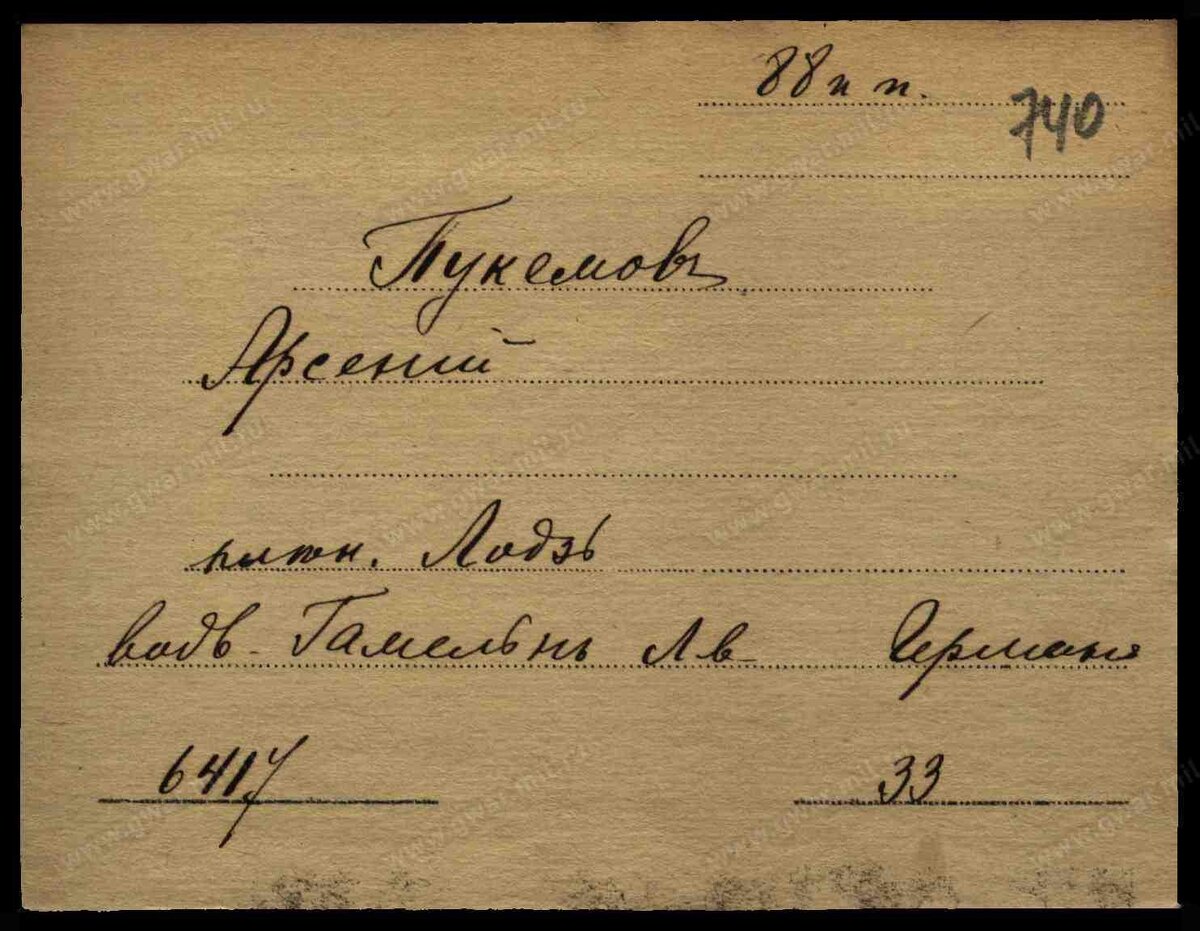 88 п п.
740
Пукемовъ
Арсений
плен. Лодзь
водв. Гамельнъ Лв Германия
6417
33
www.gwar.mil.ru